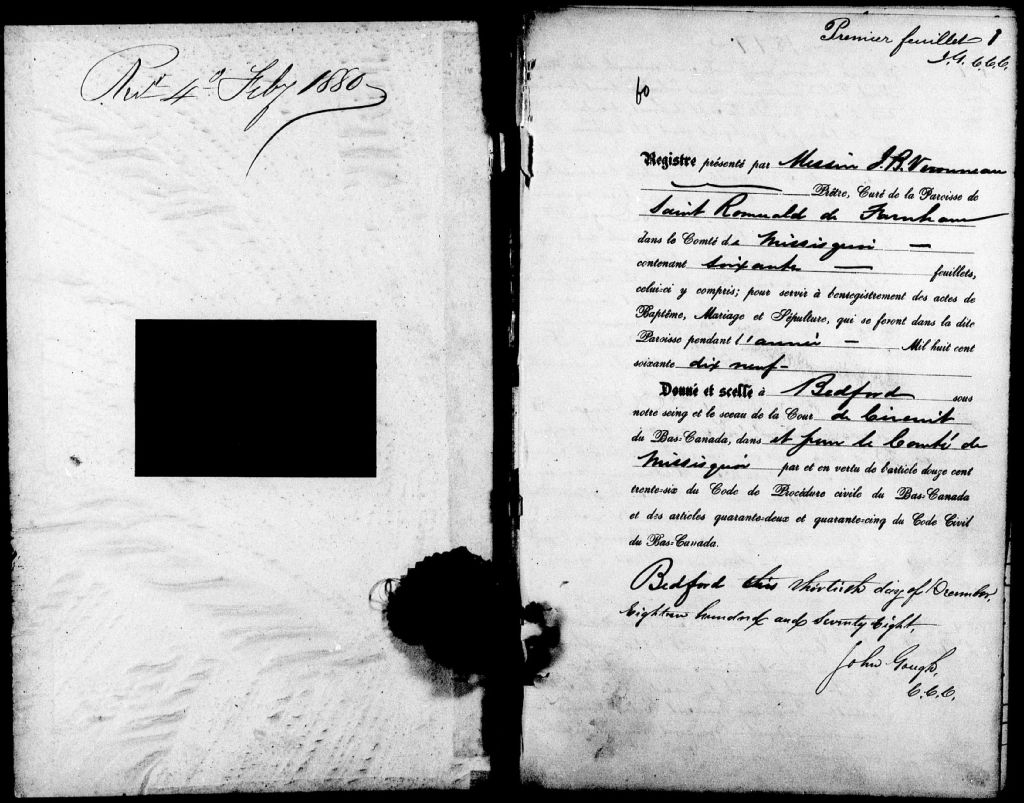 Rec'd 4th Feby 1880
Premier feuillet 1
J. G. C.C.C.
fo
Registre présenté par Messire J. B. Véronneau
Prêtre, Curé de la Paroisse de
Saint Romuald de Farnham
dans le Comté de Missisquoi —
contenant soixante — feuillets,
celui-ci y compris; pour servir à l'enregistrement des actes de
Baptême, Mariage et Sépulture, qui se feront dans la dite
Paroisse pendant l'année — Mil huit cent
soixante dix neuf —
Donné et scellé à Bedford sous
notre seing et le sceau de la Cour de Circuit
du Bas-Canada, dans et pour le Comté de
Missisquoi par et en vertu de l'article douze cent
trente-six du Code de Procédure civile du Bas-Canada
et des articles quarante-deux et quarante-cinq du Code Civil
du Bas-Canada.
Bedford this thirtieth day of December,
Eighteen hundred and Seventy Eight,
John Gough,
C.C.C.